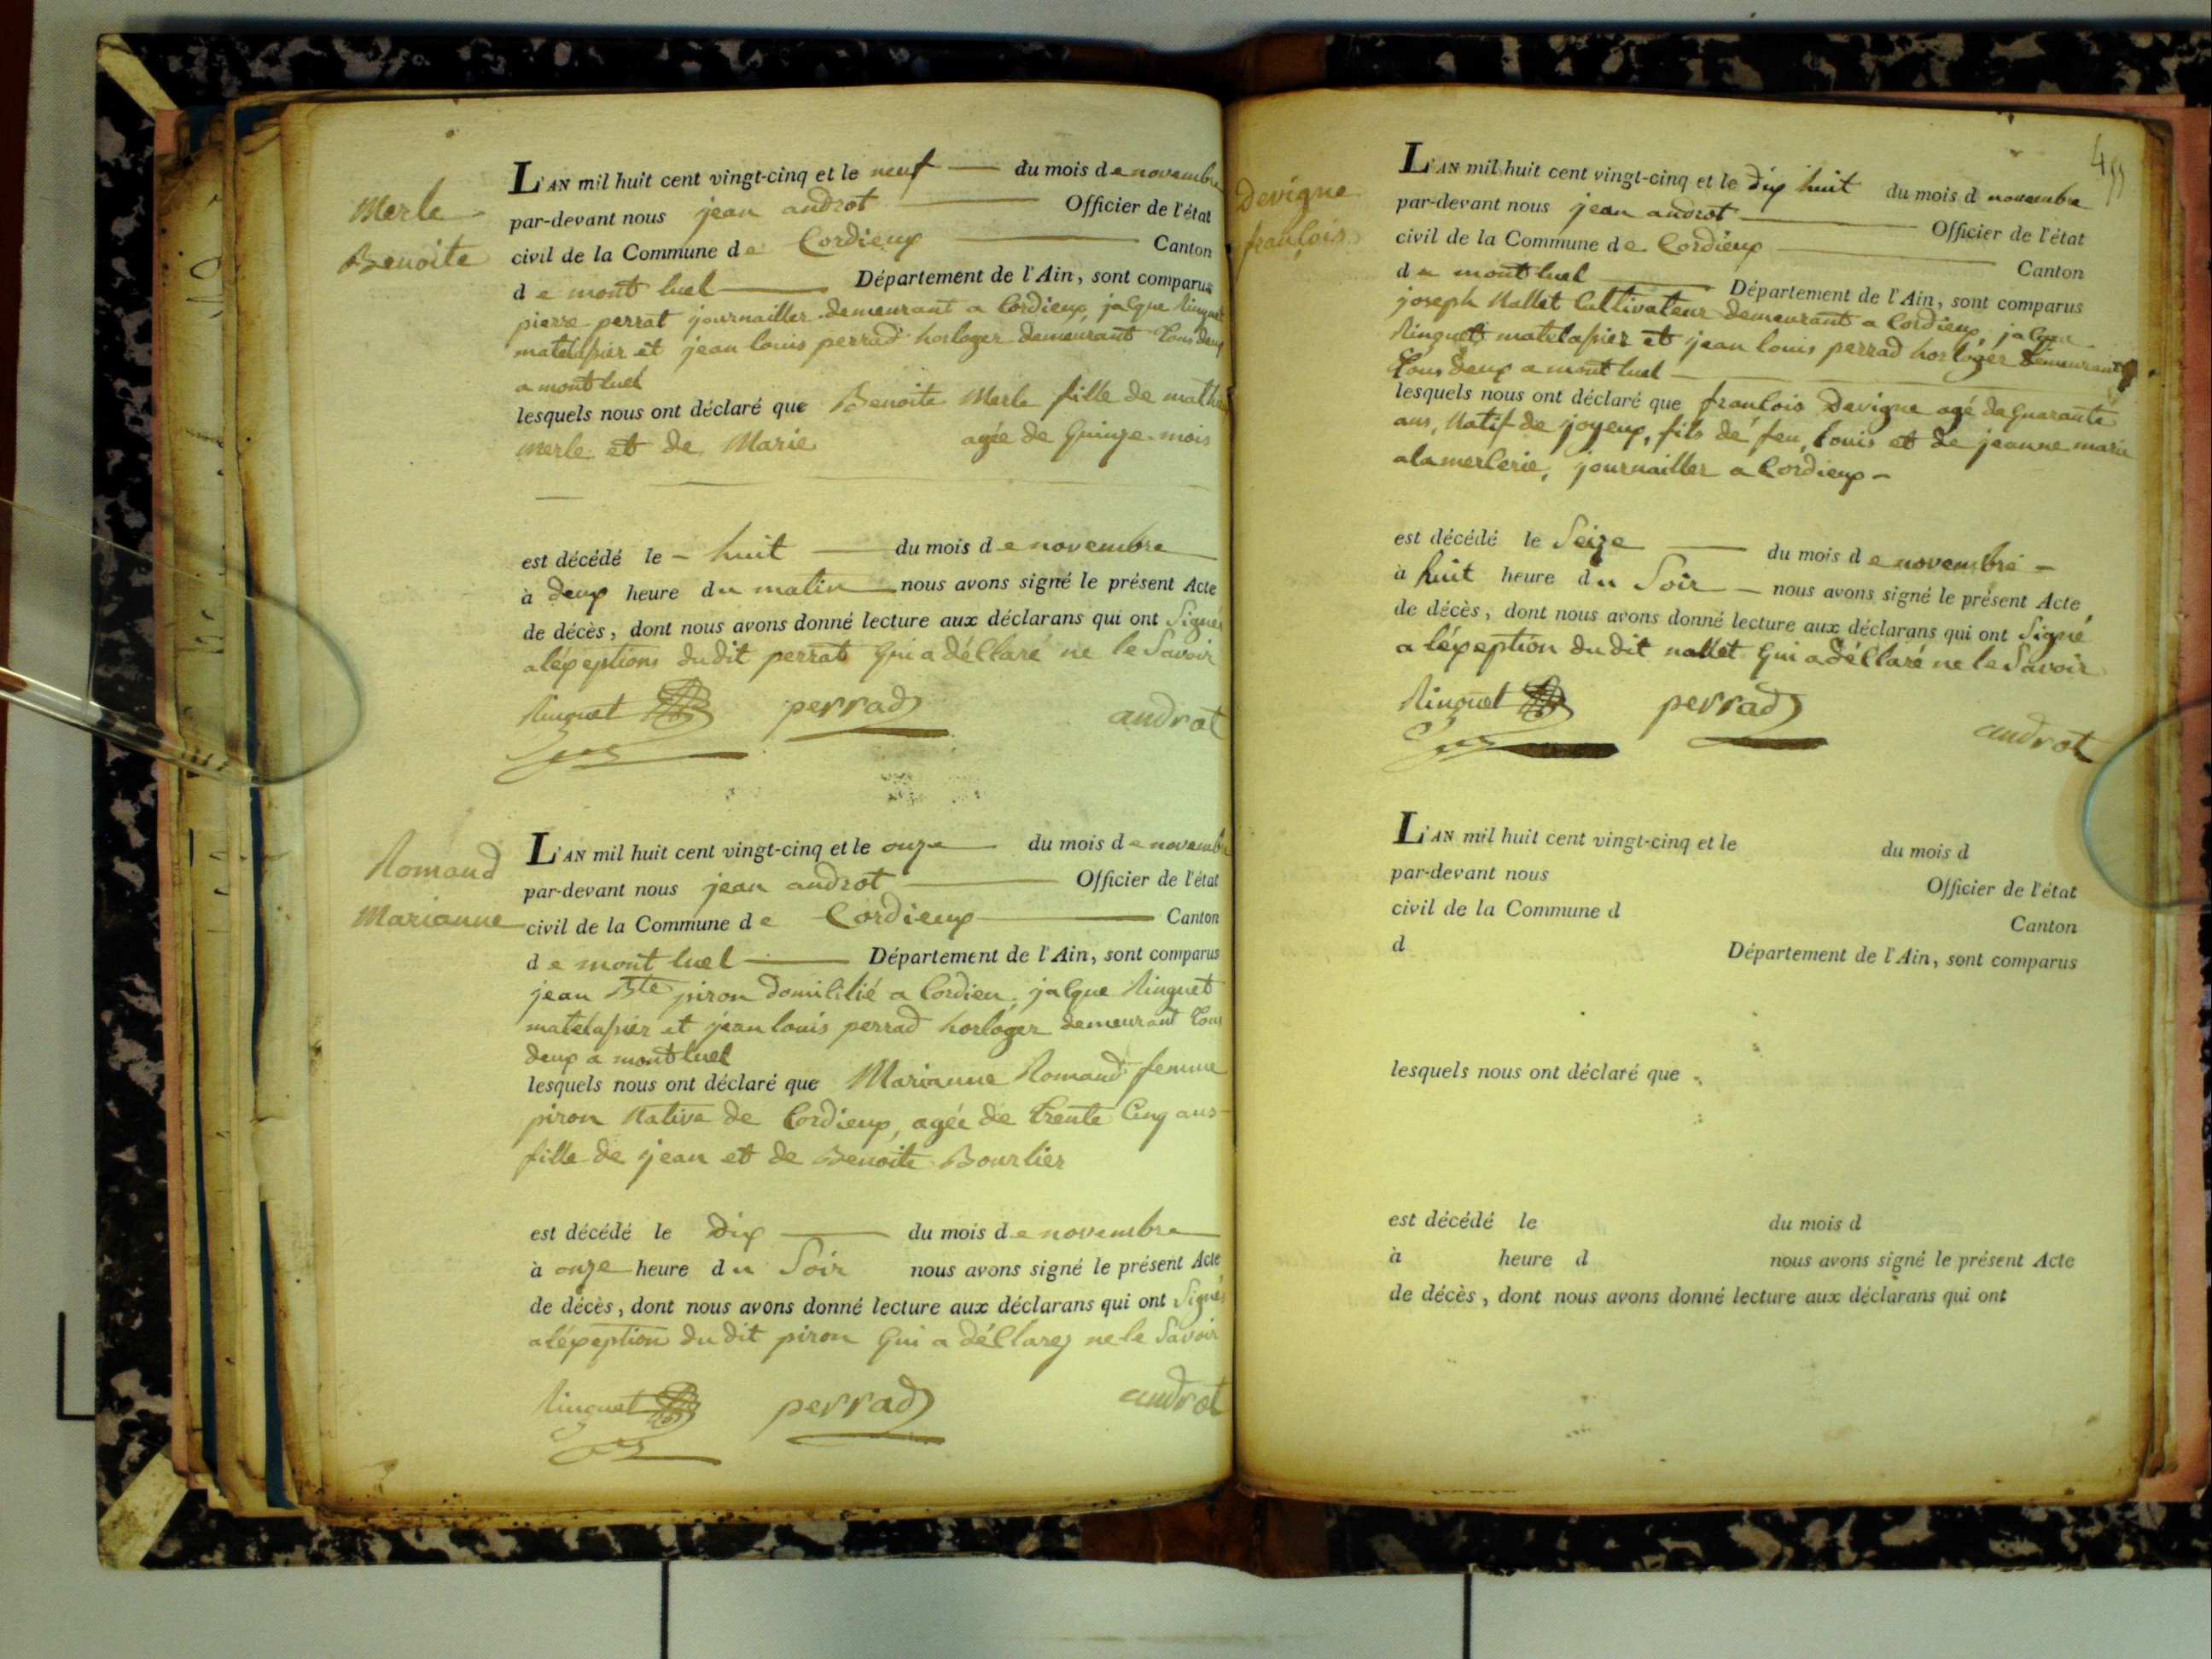 Merle
Benoite
L'AN mil huit cent vingt-cinq et le neuf du mois de novembre
par-devant nous jean androt Officier de l'état
civil de la Commune de Cordieux Canton
de mont luel Département de l'Ain, sont comparus
pierre perrat journailler demeurant a Cordieux, jaque Ringuet
matelassier et jean louis perrad horloger demeurant tous deux
a mont luel
lesquels nous ont déclaré que Benoite Merle fille de
merle et de Marie agée de Quinze mois
est décédé le huit du mois de novembre
à deux heure du matin nous avons signé le présent Acte
de décès, dont nous avons donné lecture aux déclarans qui ont Signés
a léxeptions du dit perrat Qui a déClaré ne le Savoir
Ringuet perrad androt
Romand
Marianne
L'AN mil huit cent vingt-cinq et le onze du mois de novembre
par-devant nous jean androt Officier de l'état
civil de la Commune de Cordieux Canton
de mont luel Département de l'Ain, sont comparus
jean Bte piron domiCilié a Cordieu, jaCque Ringuet
matelassier et jean louis perrad horloger demeurant tous
deux a mont luel
lesquels nous ont déclaré que Marianne Romand femme
piron Native de Cordieux, agée de trente Cinq ans
fille de jean et de Benoite Bourlier
est décédé le Dix du mois de novembre
à onze heure du Soir nous avons signé le présent Acte
de décès, dont nous avons donné lecture aux déclarans qui ont Signés
a léxeption du dit piron Qui a déClarez ne le Savoir
Ringuet perrad androt
Devigne
franCois
L'AN mil huit cent vingt-cinq et le dix huit du mois d novembre
par-devant nous jean androt Officier de l'état
civil de la Commune de Cordieux Canton
de mont luel Département de l'Ain, sont comparus
joseph Nallet Cultivateur demeurant a Cordieux, jaCque
Ringuet matelassier et jean louis perrad horloger demeurant
tous deux a mont luel
lesquels nous ont déclaré que franCois Devigne agé de Quarante
ans, Natif de joyeux, fils de feu, louis et de jeanne marie
alamerCerie, journailler a Cordieux
est décédé le Seize du mois de novembre
à huit heure du Soir nous avons signé le présent Acte
de décès, dont nous avons donné lecture aux déclarans qui ont Signé
a léxeption du dit nallet Qui a déClaré ne le Savoir
Ringuet perrad androt
L'AN mil huit cent vingt-cinq et le du mois d
par-devant nous Officier de l'état
civil de la Commune d Canton
d Département de l'Ain, sont comparus
lesquels nous ont déclaré que
est décédé le du mois d
à heure d nous avons signé le présent Acte
de décès, dont nous avons donné lecture aux déclarans qui ont